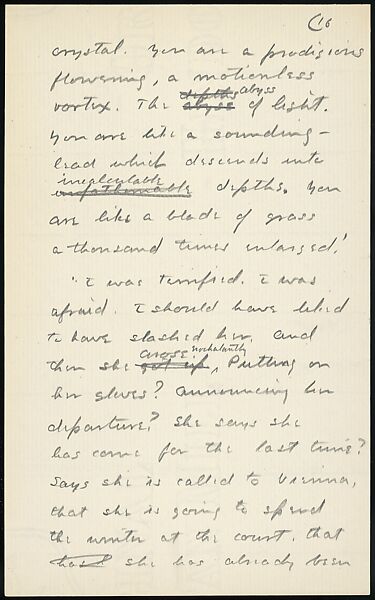 (16
crystal. You are a prodigious
flowering, a motionless
depths abyss
vortex. The abyss of light.
You are like a sounding-
lead which descends into
incalculable
unfathomable depths. You
are like a blade of grass
a thousand times enlarged!
"I was terrified. I was
afraid. I should have liked
to have slashed her. And
arose nochalantly
then she got up, Putting on
her gloves? Announcing her
departure? She says she
has come for the last time?
Says she is called to Vienna,
that she is going to spend
the winter at the court, that
has she has already been